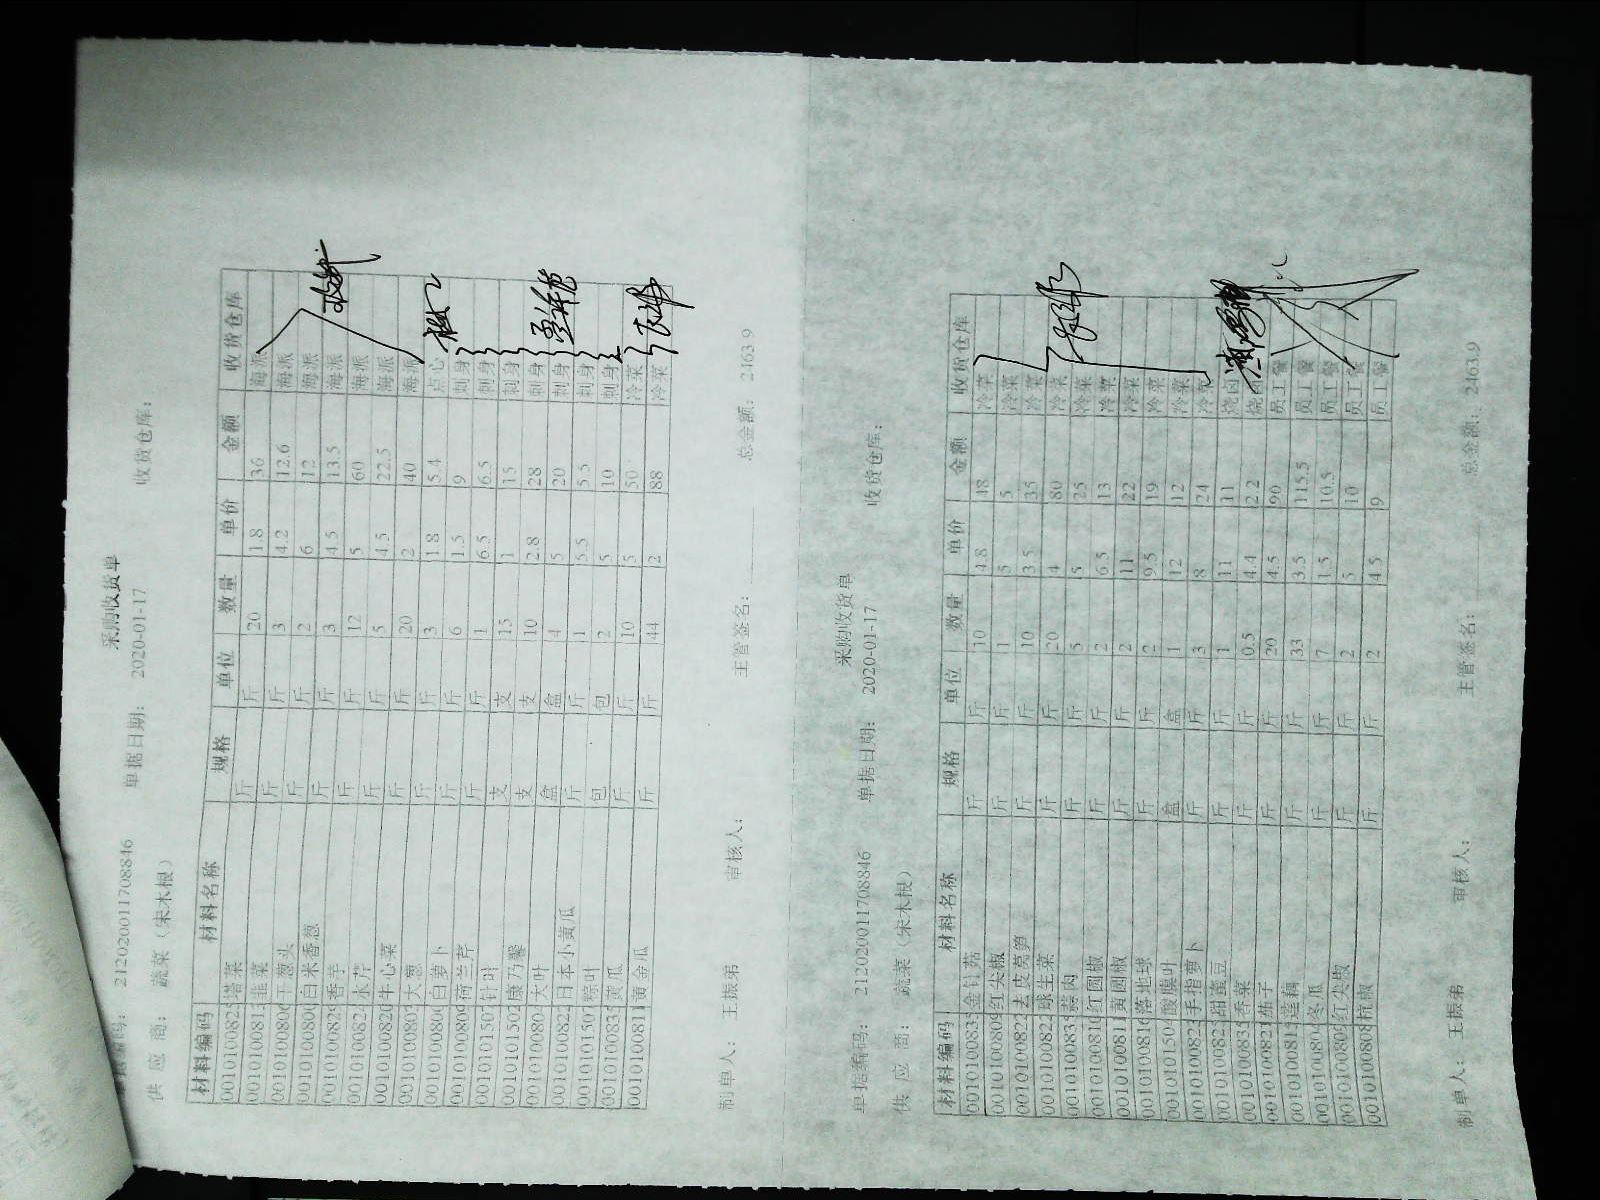 采购收货单
单据编码： 212020011708846 单据日期： 2020-01-17 收货仓库：
供 应 商： 蔬菜（宋木根）
材料编码 材料名称 规格 单位 数量 单价 金额 收货仓库
0010100825 塔菜 斤 斤 20 1.8 36 海派
001010081 韭菜 斤 斤 3 4.2 12.6 海派
001010080 干葱头 斤 斤 2 6 12 海派
001010080 白米香葱 斤 斤 3 4.5 13.5 海派
001010082 香芋 斤 斤 12 5 60 海派
001010082 水芹 斤 斤 5 4.5 22.5 海派
001010082 牛心菜 斤 斤 20 2 40 海派
001010080 大葱 斤 斤 3 1.8 5.4 点心
001010080 白萝卜 斤 斤 6 1.5 9 刺身
001010080 荷兰芹 斤 斤 1 6.5 6.5 刺身
001010150 针叶 支 支 15 1 15 刺身
001010150 康乃馨 支 支 10 2.8 28 刺身
001010080 大叶 盒 盒 4 5 20 刺身
001010082 日本小黄瓜 斤 斤 1 5.5 5.5 刺身
001010150 粽叶 包 包 2 5 10 刺身
001010083 黄瓜 斤 斤 10 5 50 冷菜
001010081 黄金瓜 斤 斤 44 2 88 冷菜
制单人： 王振弟 审核人： 主管签名： 总金额： 2463.9
采购收货单
单据编码： 212020011708846 单据日期： 2020-01-17 收货仓库：
供 应 商： 蔬菜（宋木根）
材料编码 材料名称 规格 单位 数量 单价 金额 收货仓库
001010083 金针菇 斤 斤 10 4.8 48 冷菜
001010080 红尖椒 斤 斤 1 5 5 冷菜
001010082 去皮莴笋 斤 斤 10 3.5 35 冷菜
001010082 球生菜 斤 斤 20 4 80 冷菜
001010083 蒜肉 斤 斤 5 5 25 冷菜
001010081 红圆椒 斤 斤 2 6.5 13 冷菜
001010081 黄圆椒 斤 斤 2 11 22 冷菜
001010081 落地球 斤 斤 2 9.5 19 冷菜
001010150 酸膜叶 盒 盒 1 12 12 冷菜
001010082 手指萝卜 斤 斤 3 8 24 冷菜
001010082 甜蜜豆 斤 斤 1 11 11 烧卤
001010083 香菜 斤 斤 0.5 4.4 2.2 烧卤
001010082 茄子 斤 斤 20 4.5 90 员工餐
001010081 莲藕 斤 斤 33 3.5 115.5 员工餐
001010080 冬瓜 斤 斤 7 1.5 10.5 员工餐
001010080 红尖椒 斤 斤 2 5 10 员工餐
001010080 杭椒 斤 斤 2 4.5 9 员工餐
制单人： 王振弟 审核人： 主管签名： 总金额： 2463.9